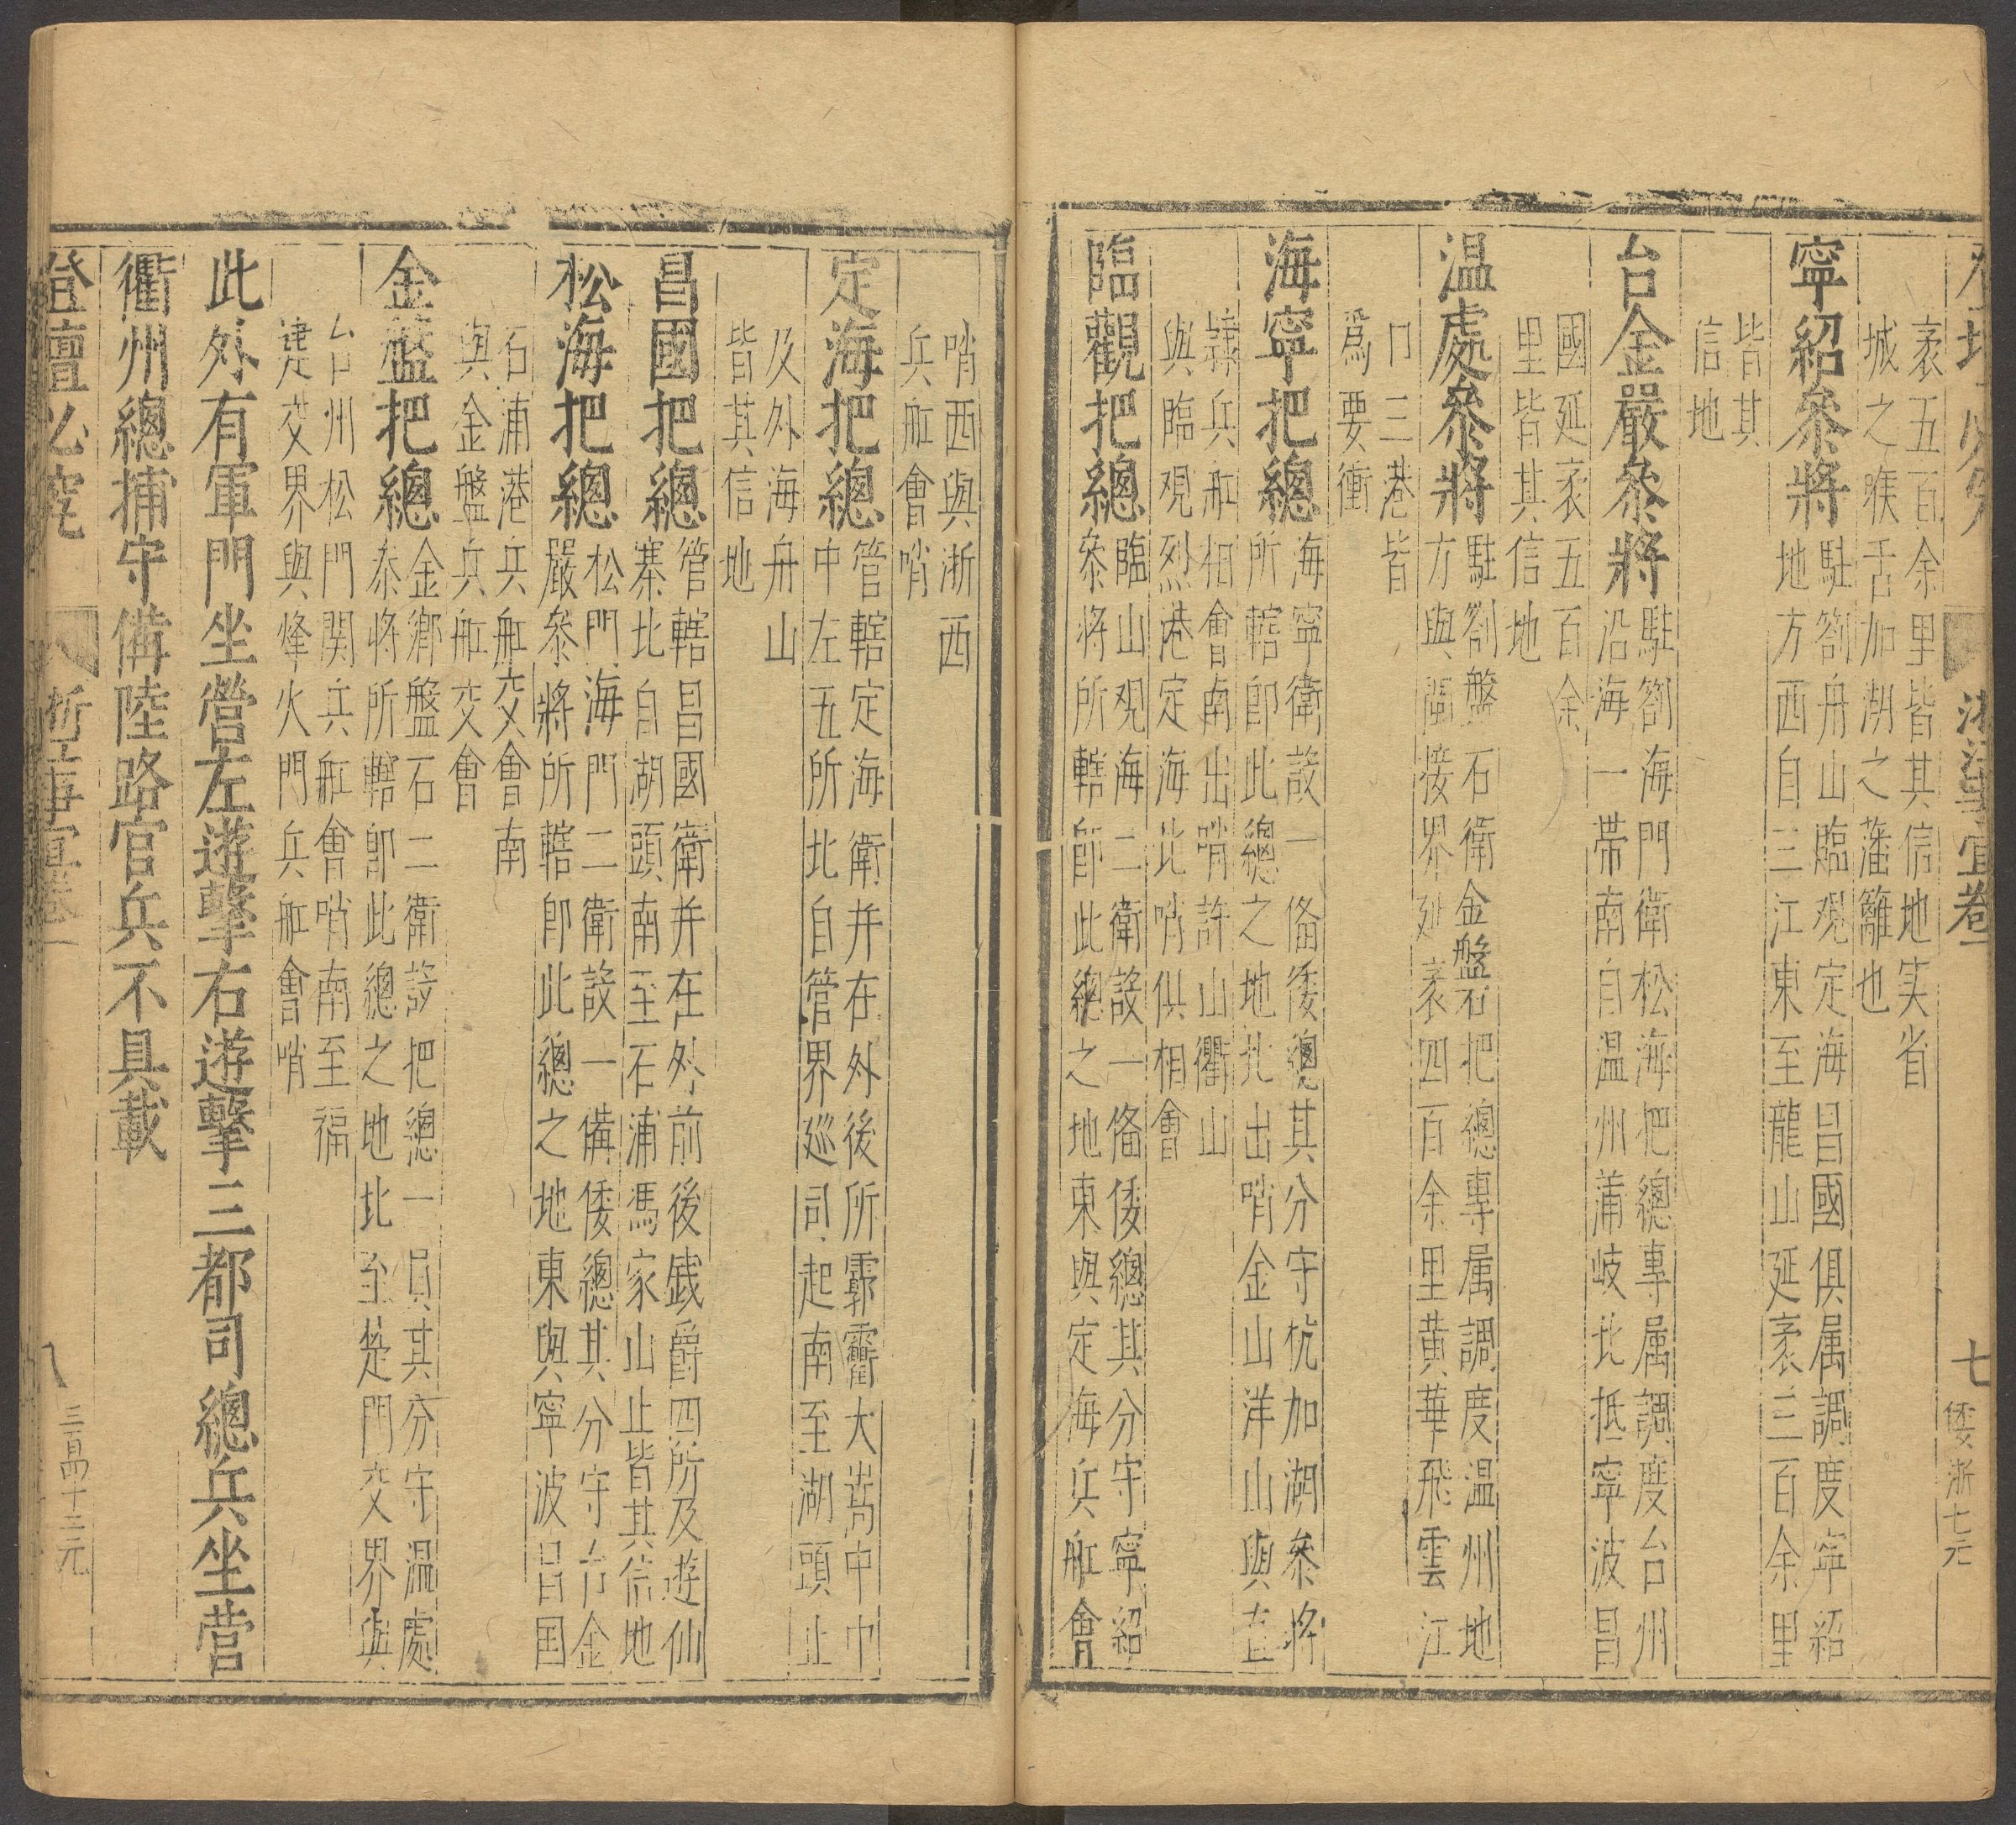 袤五百余里皆其信地实省
城之喉舌加湖之藩籬也
寧紹叅將
駐劄舟山臨观定海昌國俱属調度寧紹
地方西自三江東至龍山延袤三百余里
皆其
信地
台金嚴叅將
駐劄海門衛松海把總專属調度台州
沿海一帶南自温州蒲岐北抵寧波昌
國延袤五百余
里皆其信地
温處叅將
駐劄盤石衛金盤石把總專属調度温州地
方與閩接界延袤四百余里黄華飛雲江
口三港皆
爲要衝
海寧把總
海寧衛設一俻倭總其分守杭加湖叅將
所轄即此總之地北出哨金山洋山與直
隷兵船相會南出哨許山衢山
與臨观烈港定海北哨俱相會
臨觀把總
臨山观海二衛設一俻倭總其分守寧紹
叅将所轄即此總之地東與定海兵船會
哨西與浙西
兵船會哨
定海把總
管轄定海衛并在外後所霸衢大嵩中中
中左五所北自管界廵司起南至湖頭止
及外海舟山
皆其信地
昌國把總
管轄昌國衛并在外前後錢爵四所及遊仙
寨北自湖頭南至石浦馮家山止皆其信地
松海把總
松門海門二衛設一備倭總其分守台金
嚴叅將所轄即此總之地東與寧波昌国
石浦港兵船交會南
與金盤兵船交會
金盤把總
金鄉盤石二衛設把總一員其分守温處
叅將所轄即此總之地北至楚門交界與
台州松門関兵船會哨南至福
建交界與烽火門兵船會哨
此外有軍門坐營左遊擊右遊擊三都司總兵坐营
衢州總捕守備陸路官兵不具載
登壇必究
浙江事宜卷一
八
三百四十三元
七
倭浙七元